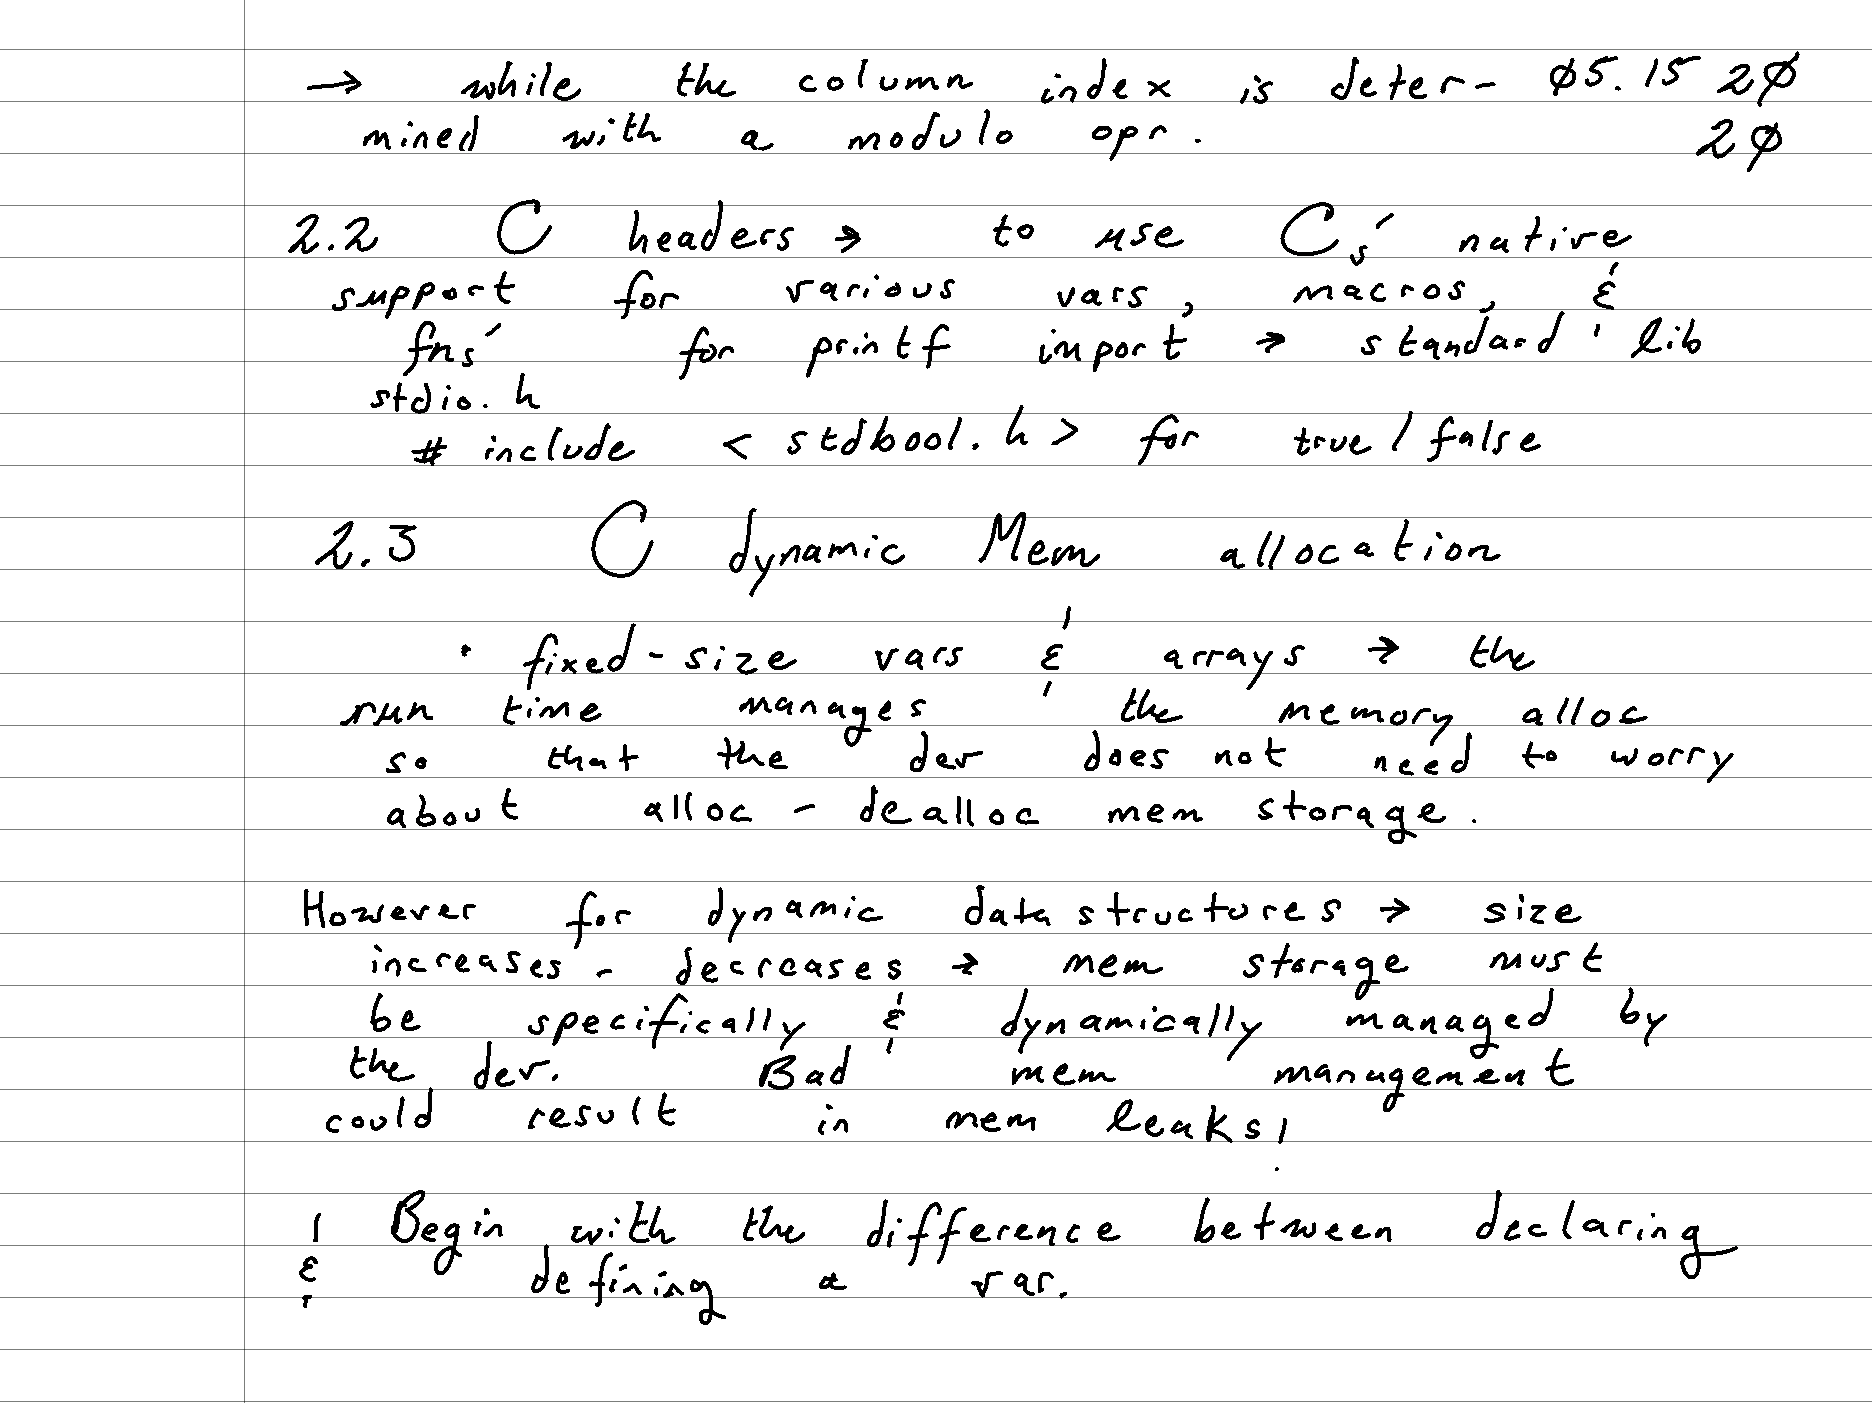 → while the column index is deter- Ø5.15 2Ø
mined with a modulo opr. 2Ø
2.2 C headers → to use Cs' native
support for various vars, macros, &
fns' for printf import → standard lib
stdio.h
# include < stdbool.h > for true / false
2.3 C dynamic Mem allocation
· fixed-size vars & arrays → the
run time manages the memory alloc
so that the dev does not need to worry
about alloc - dealloc mem storage.
However for dynamic data structures → size
increases - decreases → mem storage must
be specifically & dynamically managed by
the dev. Bad mem management
could result in mem leaks!
Begin with the difference between declaring
& defining a var.